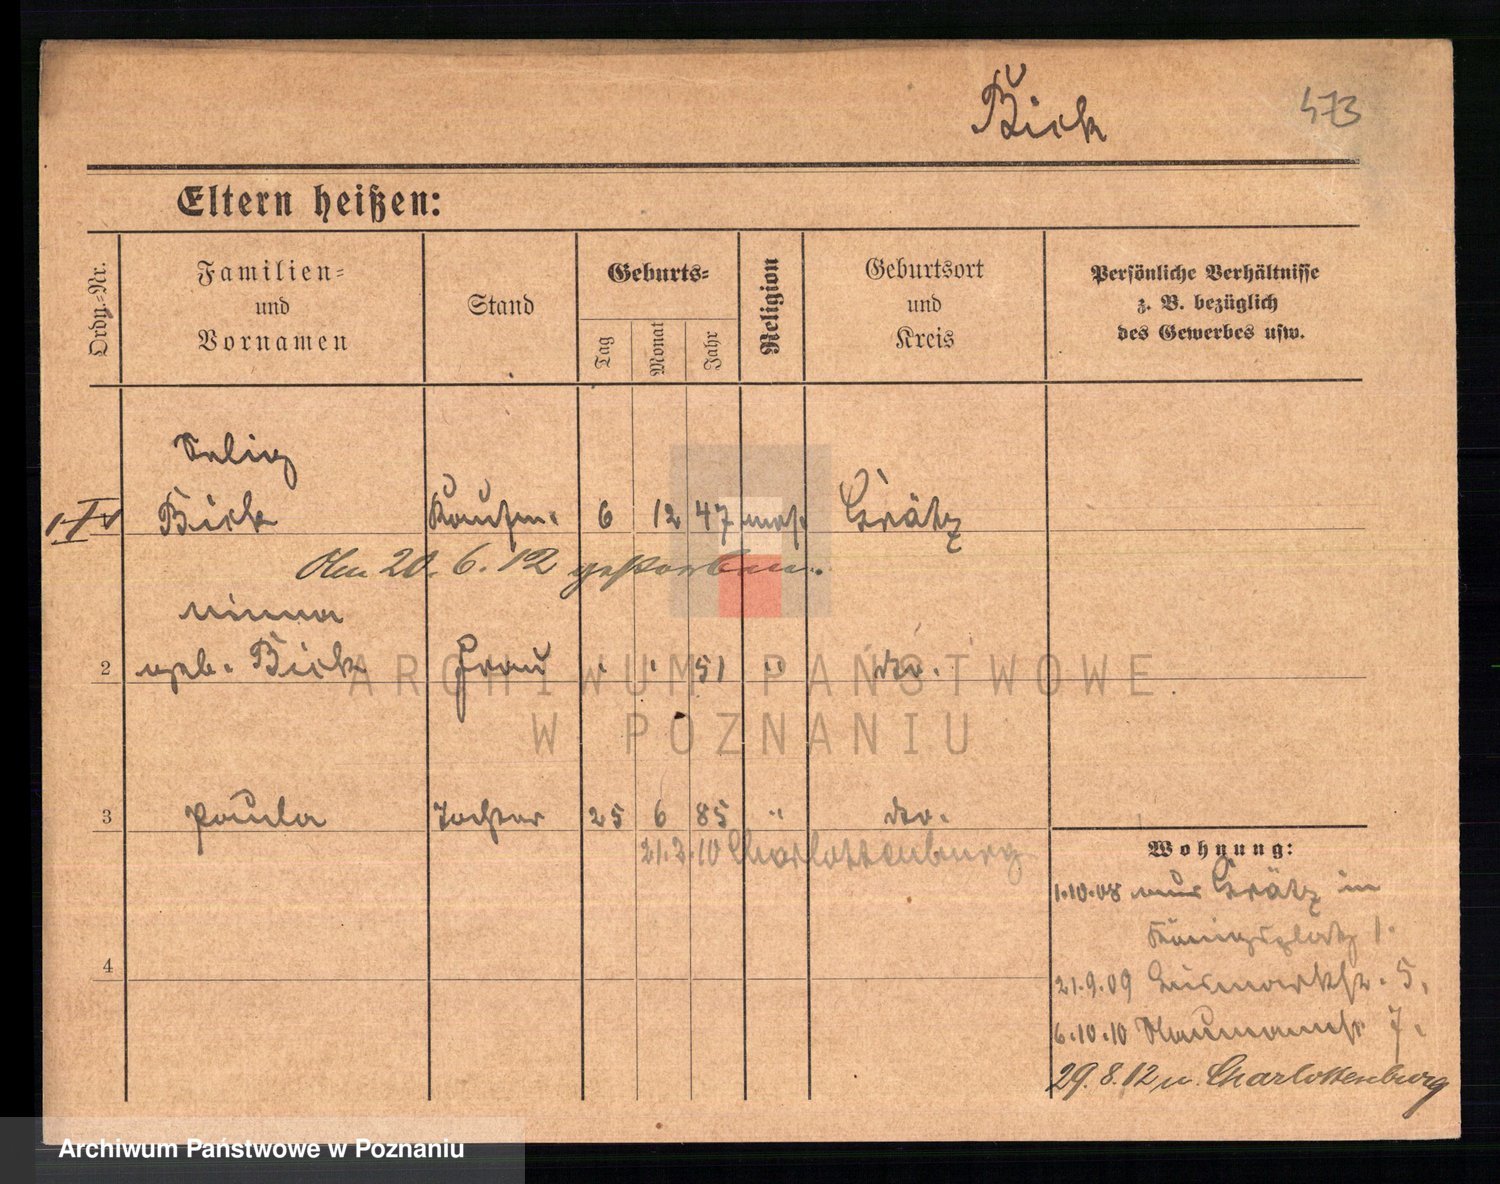 Bick 473
Eltern heißen:
Ordn.-Nr.
Familien-
und
Vornamen
Stand
Geburts-
Tag
Monat
Jahr
Religion
Geburtsort
und
Kreis
Persönliche Verhältnisse
z. B. bezüglich
des Gewerbes usw.
Selig
Bick Kaufm. 6 12 47 mos. Grätz
Am 20. 6. 12 gestorben.
Minna
2 geb. Bick Frau 51 " do.
3 Paula Tochter 25 6 85 " do.
21.2.10 Charlottenburg
4
Wohnung:
1.10.08 aus Grätz in
Königsplatz 1.
21.9.09 Bismarckstr. 5.
6.10.10 Naumannstr 7.
29.8.12 n. Charlottenburg
ARCHIWUM PAŃSTWOWE
W POZNANIU
Archiwum Państwowe w Poznaniu